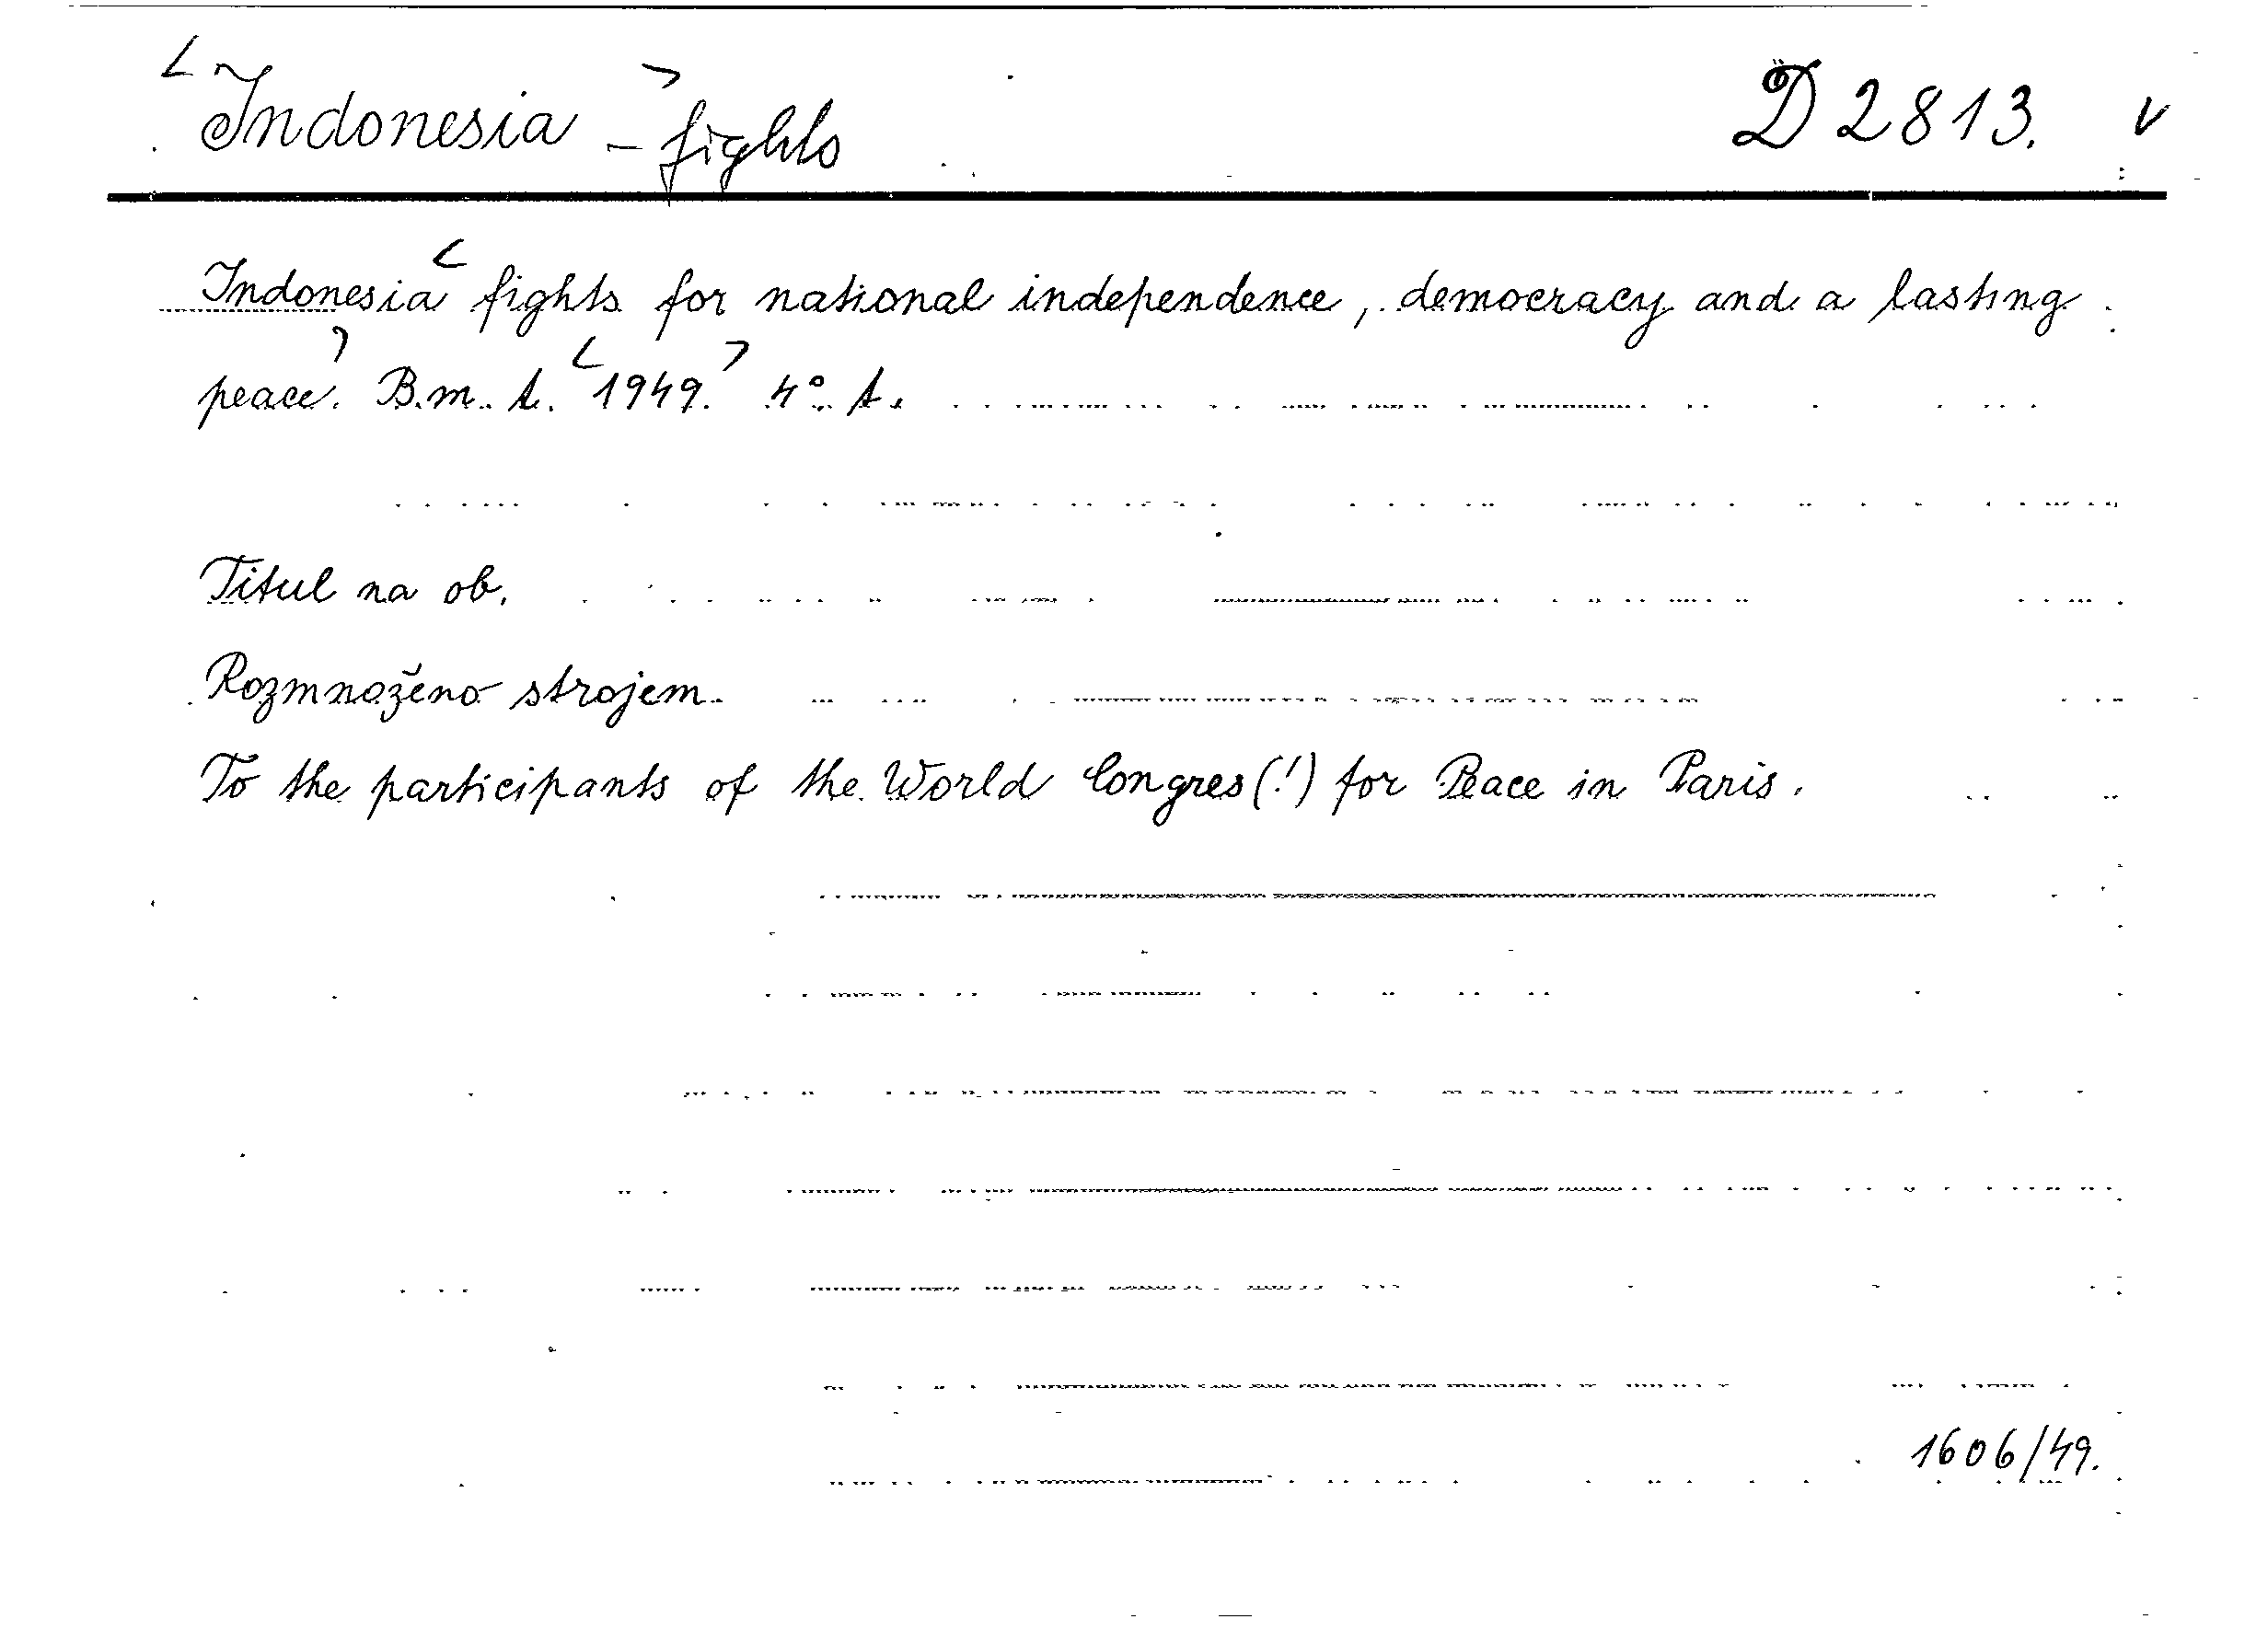 Indonesia - fights D 2813. v
Indonesia fights for national independence, democracy and a lasting
peace. B.m. t. 1949. 4° t.
Titul na ob.
Rozmnoženo strojem.
To the participants of the World Congres (!) for Peace in Paris.
1606/49.